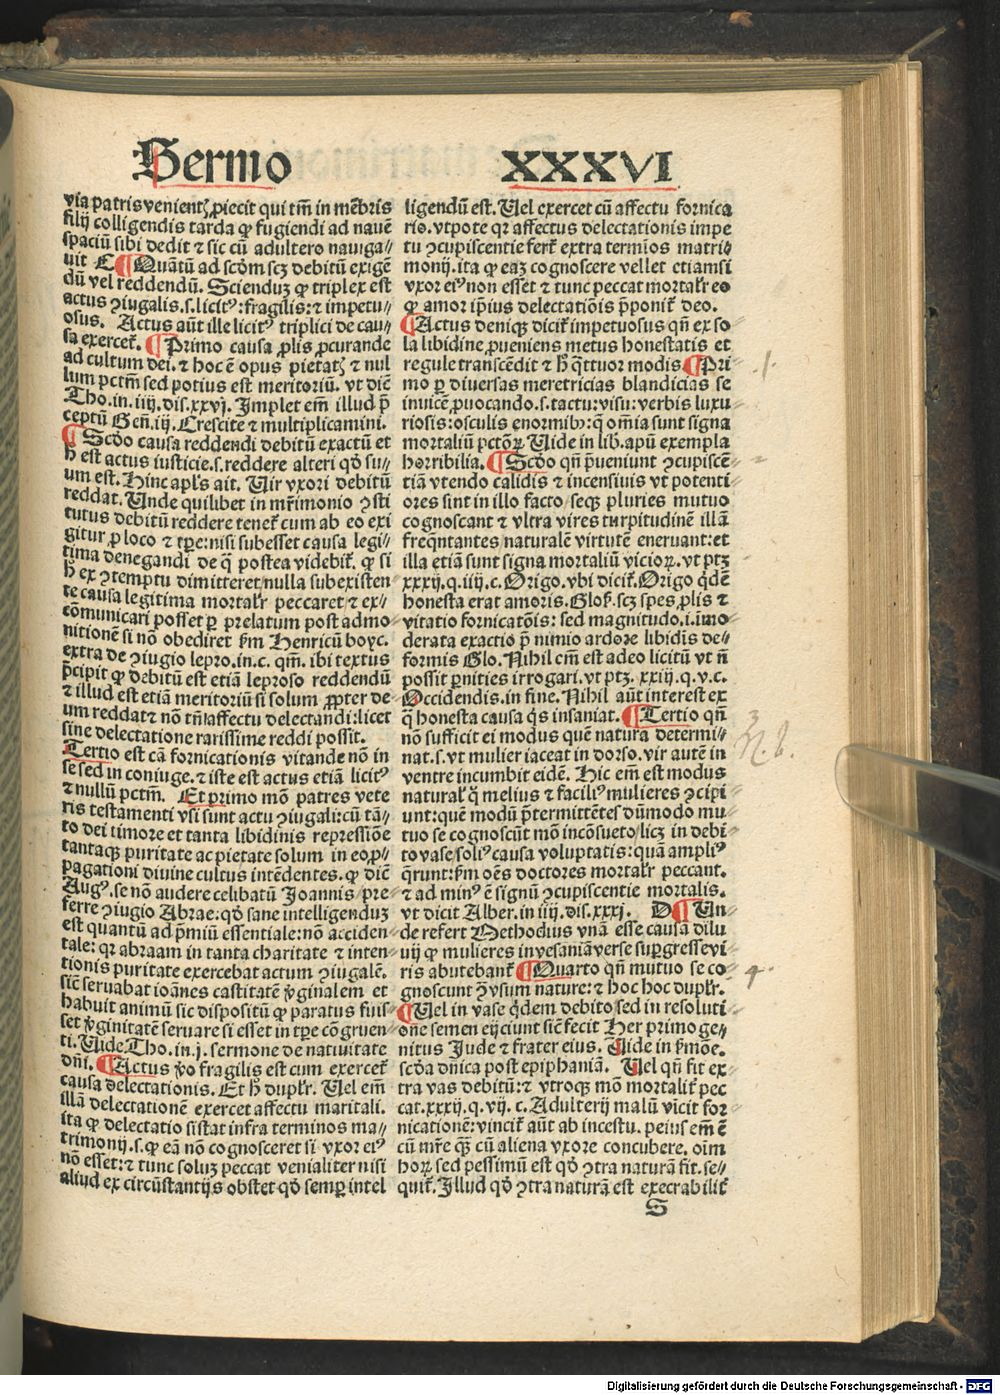 Sermo XXXVI
via patris venientꝫ ꝓiecit qui tm̄ in mēbris
filij colligendis tarda ꝙ fugiendi ad nauē
spaciū sibi dedit ⁊ sic cū adultero nauiga⸗
uit C ¶Quātū ad scd̄m scꝫ debitū exigē
dū vel reddendū. Scienduꝫ ꝙ triplex est
actus ꝯiugalis.s.licitꝰ:fragilis:⁊ impetu⸗
osus. Actus aūt ille licitꝰ triplici de cau⸗
sa exercet᷑. ¶Primo causa ꝓlis ꝓcurande
ad cultum dei.⁊ hoc ē opus pietatꝫ ⁊ nul
lum pctm̄ sed potius est meritoriū. vt dic̄
Tho.in.iiij.dis.xxvj. Implet em̄ illud p̄
ceptū Gen̄.iij. Crescite ⁊ multiplicamini.
¶Scd̄o causa reddendi debitū exactū et
h̄ est actus iusticie.s.reddere alteri qd̄ su⸗
um est. Hinc apl̄s ait. Uir vxori debitū
reddat. Unde quilibet in mr̄imonio ꝯsti
tutus debitū reddere tenet᷑ cum ab eo exi
gitur ꝓ loco ⁊ tp̄e:nisi subesset causa legi⸗
tima denegandi de q̄ postea videbit᷑. ꝙ si
h̄ ex ꝯtemptu dimitteret nulla subexisten
te causa legitima mortalr̄ peccaret ⁊ ex⸗
cōmunicari posset ꝑ prelatum post admo⸗
nitionē si nō obediret ẜm Henricū boyc.
extra de ꝯiugio lepro.in.c. qm̄. ibi textus
p̄cipit ꝙ debitū est etiā leproso reddendū
⁊ illud est etiā meritoriū si solum ꝓpter de
um reddat ⁊ nō tm̄ affectu delectandi:licet
sine delectatione rarissime reddi possit.
Tertio est cā fornicationis vitande nō in
se sed in coniuge.⁊ iste est actus etiā licitꝰ
⁊ nullū pctm̄. Et primo mō patres vete
ris testamenti vsi sunt actu ꝯiugali:cū tā⸗
to dei timore et tanta libidinis repressiōe
tantaqꝫ puritate ac pietate solum in eo,ꝓ⸗
pagationi diuine cultus intēdentes.ꝙ dic̄
Augꝰ.se nō audere celibatū Joannis pre
ferre ꝯiugio Abrae:qd̄ sane intelligenduꝫ
est quantū ad p̄miū essentiale:nō acciden⸗
tale: qꝛ abraam in tanta charitate ⁊ inten⸗
tionis puritate exercebat actum ꝯiugalē.
sic̄ seruabat ioānes castitatē v̄ginalem et
habuit animū sic dispositū ꝙ paratus fuis⸗
set v̄ginitatē seruare si esset in tp̄e cōgruen⸗
ti. Uide Tho.in.j. sermone de natiuitate
dn̄i. ¶Actus v̄o fragilis est cum exercet᷑
causa delectationis. Et h̄ duplr̄. Uel em̄
illā delectationē exercet affectu maritali.
ita ꝙ delectatio sistat infra terminos ma⸗
trimonij.s.ꝙ eā nō cognosceret si vxor eiꝰ
nō esset:⁊ tunc soluꝫ peccat venialiter nisi
aliud ex circūstantijs obstet qd̄ semꝑ intel
ligendū est. Uel exercet cū affectu fornica
rio.vtpote qꝛ affectus delectationis impe
tu ꝯcupiscentie fert᷑ extra termīos matri⸗
monij.ita ꝙ eaꝫ cognoscere vellet etiamsi
vxor eiꝰ non esset ⁊ tunc peccat mortalr̄ eo
ꝙ amor ip̄ius delectatiōis p̄ponit᷑ deo.
¶Actus deniqꝫ dicit᷑ impetuosus qn̄ ex so
la libidine ꝓueniens metus honestatis et
regule transcēdit ⁊ h̄ q̄ttuor modis ¶Pri⸗ 1.
mo ꝑ diuersas meretricias blandicias se
inuicē ꝓuocando.s.tactu:visu:verbis luxu
riosis:osculis enormibꝰ:q̄ om̄ia sunt signa
mortaliū pctōꝝ Uide in lib.apū exempla
horribilia. ¶Scd̄o qn̄ p̄ueniunt ꝯcupiscē⸗
tiā vtendo calidis ⁊ incensiuis vt potenti
ores sint in illo facto seqꝫ pluries mutuo
cognoscant ⁊ vltra vires turpitudinē illā
freq̄ntantes naturalē virtutē eneruant:et
illa etiā sunt signa mortaliū vicioꝝ. vt ptꝫ
xxxij.q.iiij.c.Origo.vbi dicit᷑.Origo q̄dē
honesta erat amoris.Glos̄.scꝫ spes ꝓlis ⁊
vitatio fornicatōis: sed magnitudo.i.imo⸗
derata exactio p̄ nimio ardore libidis de⸗
formis Glo. Nihil em̄ est adeo licitū vt n̄
possit ꝑnities irrogari.vt ptꝫ. xxiij.q.v.c.
Occidendis.in fine. Nihil aūt interest ex
q̄ honesta causa q̇s insaniat. ¶Tertio qn̄ 3
nō sufficit ei modus quē natura determi⸗ N. b.
nat.s.vt mulier iaceat in dorso.vir autē in
ventre incumbit eidē. Hic em̄ est modus
natural̓ q̄ melius ⁊ faciliꝰ mulieres ꝯcipi
unt:quē modū p̄termittētes dūmodo mu⸗
tuo se cognoscūt mō incōsueto/licꝫ in debi⸗
to vase/soliꝰ causa voluptatis:quā ampliꝰ
q̄runt:ẜm oēs doctores mortalr̄ peccant.
⁊ ad minꝰ ē signū ꝯcupiscentie mortalis.
vt dicit Alber.in iiij.dis.xxxj. D ¶Un⸗
de refert Methodius vnā esse causā dilu
uij ꝙ mulieres in vesaniā verse suꝑgressevi
ris abutebant᷑ ¶Quarto qn̄ mutuo se co⸗ 4.
gnoscunt ꝯ̄ vsum nature:⁊ hoc hoc duplr̄.
¶Uel in vase q̇dem debito sed in resoluti⸗
one semen eijciunt sic̄ fecit Her primoge⸗
nitus Jude ⁊ frater eius. Uide in ẜmōe.
scd̄a dn̄ica post epiphaniā. Uel qn̄ fit ex⸗
tra vas debitū:⁊ vtroqꝫ mō mortalit᷑ pec
cat.xxxij.q.vij. c. Adulterij malū vicit for
nicationē:vincit᷑ aūt ab incestu. peius em̄ ē
cū mr̄e q̄ꝫ cū aliena vxore concubere. oīm
hoꝝ sed pessimū est qd̄ ꝯtra naturā fit.se⸗
quit᷑. Illud qd̄ ꝯtra naturā est execrabilit᷑
S
Digitalisierung gefördert durch die Deutsche Forschungsgemeinschaft - DFG